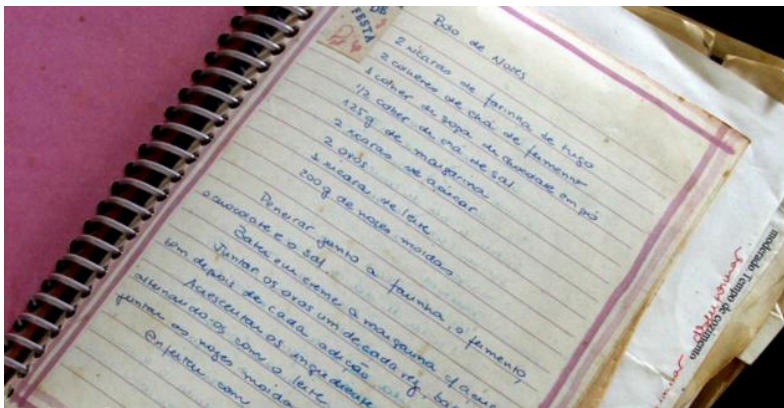 DE
FESTA
Bolo de Nozes
2 xícaras de farinha de trigo
2 colheres de chá de fermento
1 colher de sopa de chocolate em pó
1/2 colher de chá de sal
125g de margarina
2 xícaras de açúcar
2 ovos
1 xícara de leite
200g de nozes moídas
Peneirar junto a farinha, o fermento,
o chocolate e o sal.
Bater em creme a margarina c/ açúc
Juntar os ovos um de cada vez, bat
bem depois de cada adição
Acrescentar os ingrediente
alternando-os com o leite
juntar as nozes moída
Enfeitar com
moderado Tempo de cozimento